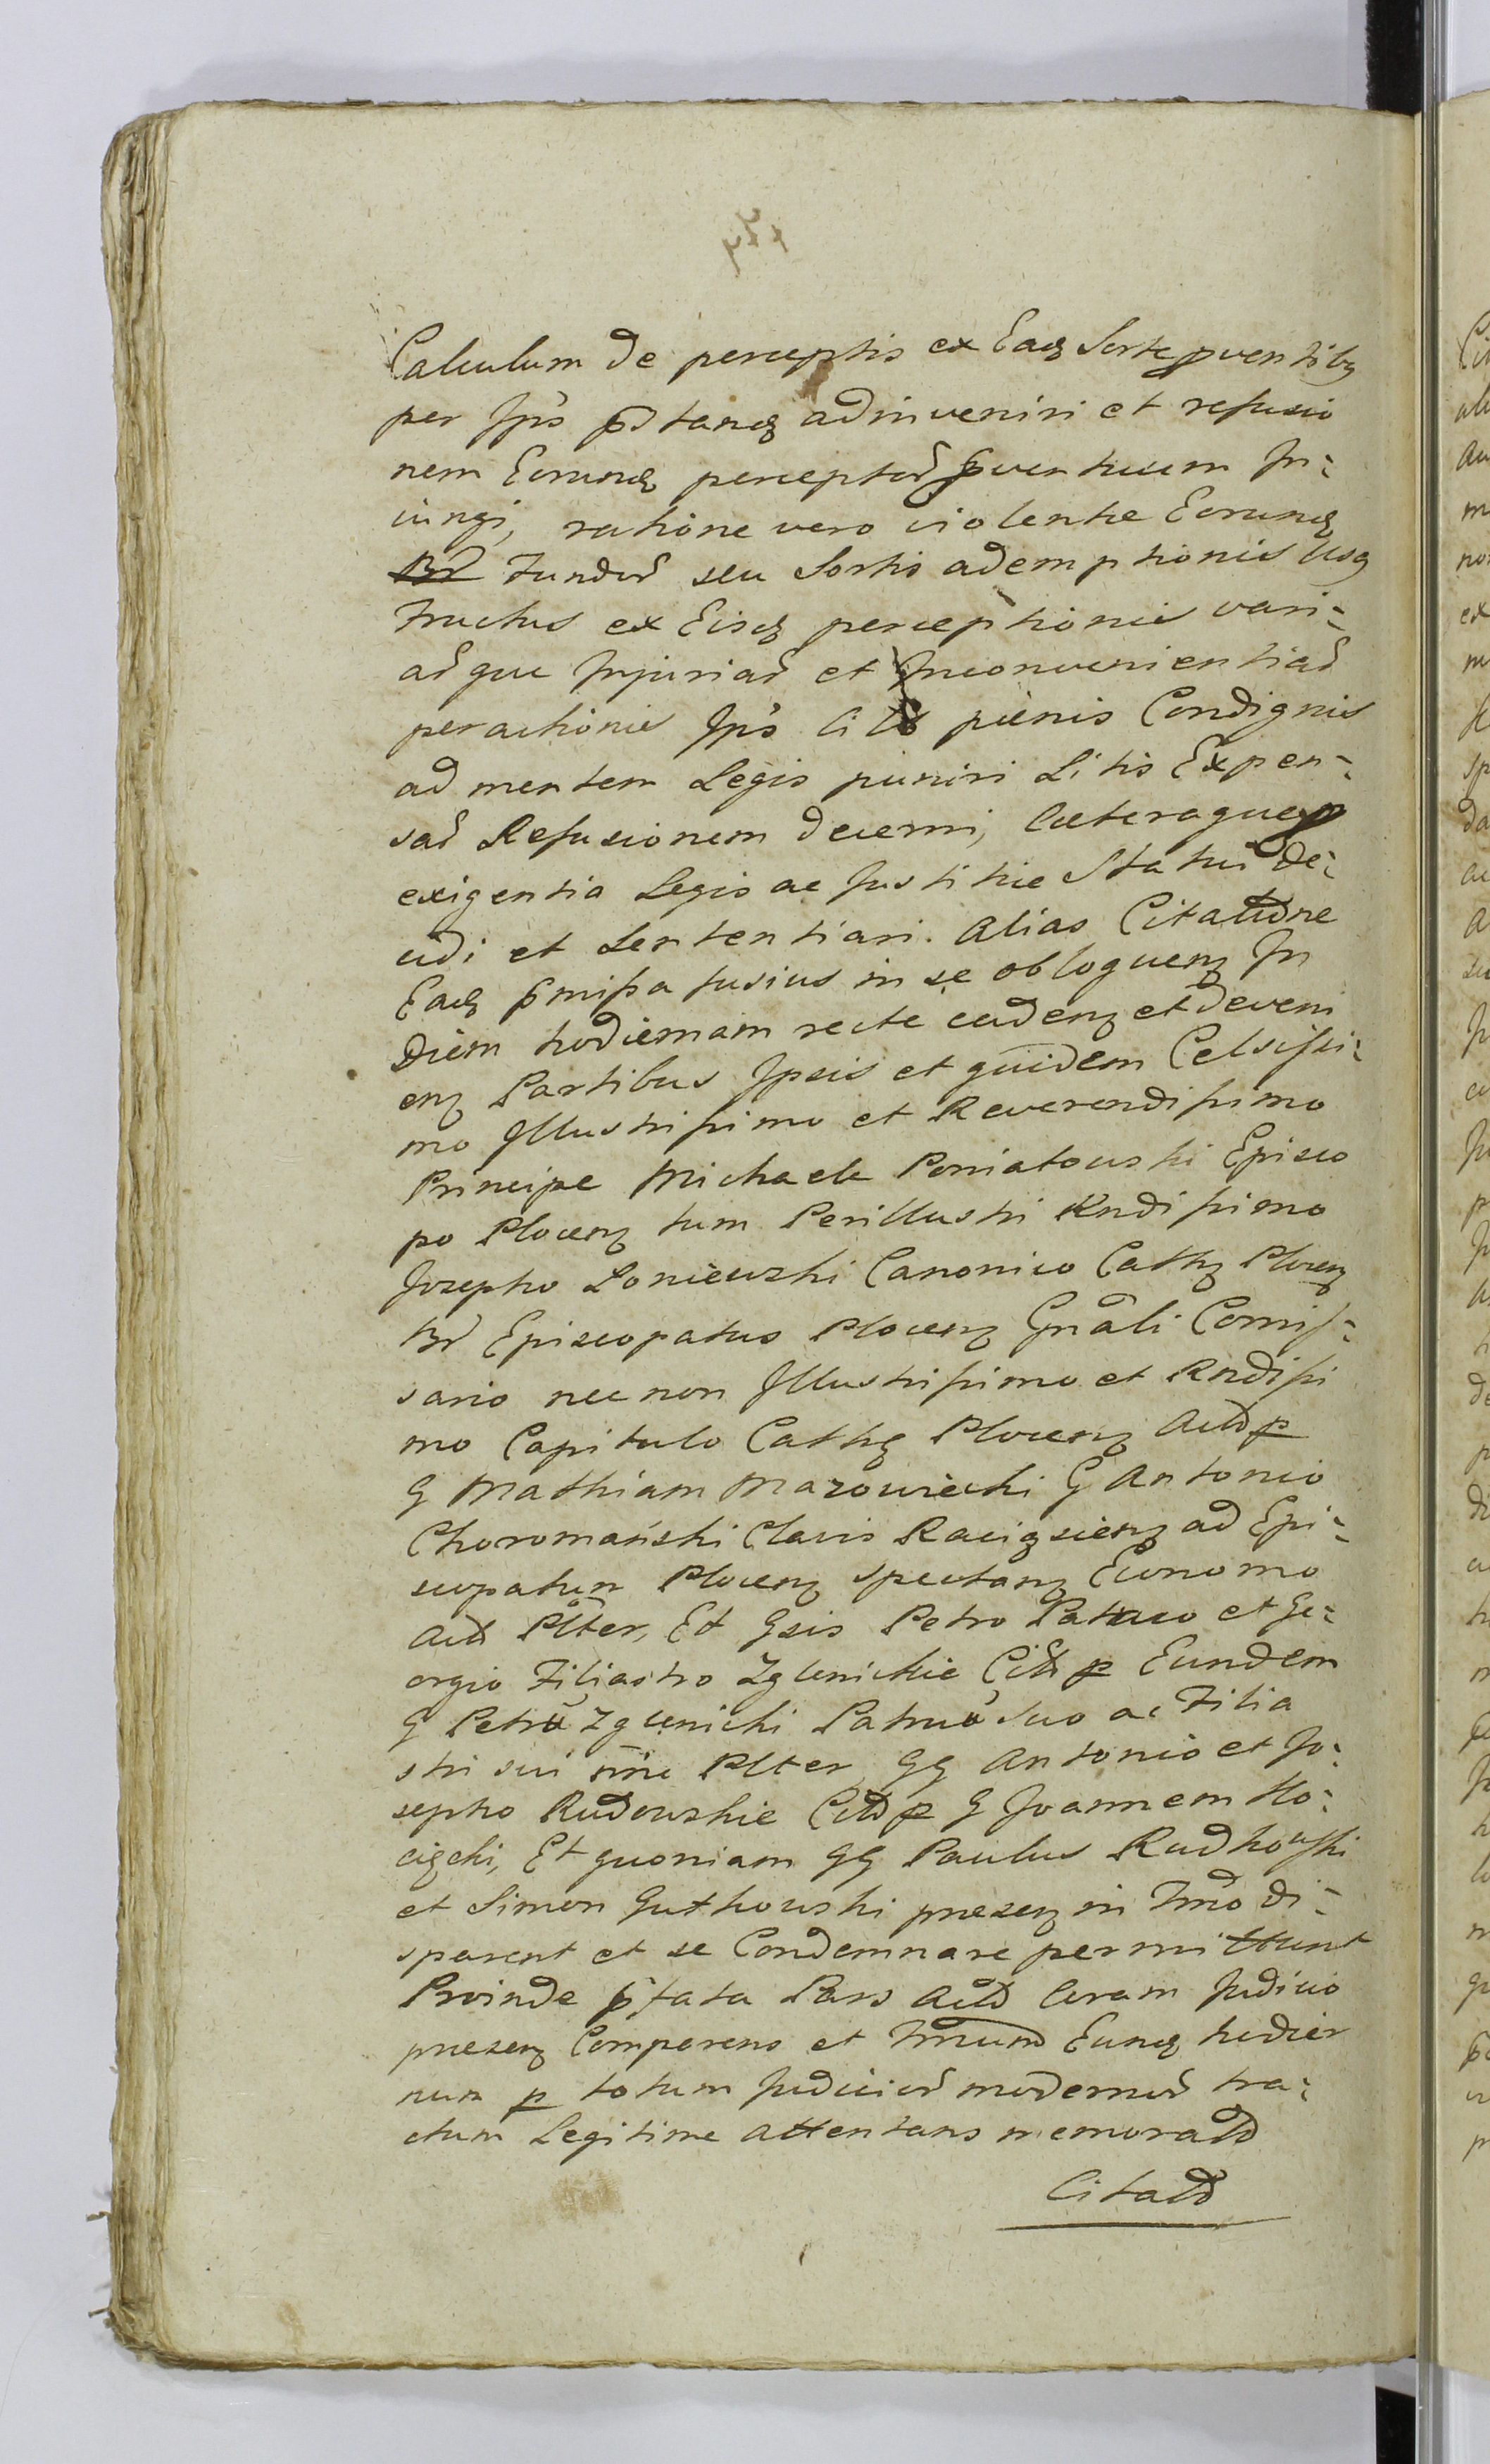 Calculum de perceptis ex Eadꝫ Sorte pventibꝫ
per Ips pdtandꝫ adinveniri et refusio
nem Eorundꝫ perceptoꝝ pventuum In=
iungi, ratione vero violentie Eorundꝫ
Bnoꝝ Fundoꝝ seu Sortis ademptionis Usq
Fructus ex Eisdꝫ perceptionis vari=
aꝝque Injuriaꝝ et Inconvenientiaꝝ
peractionis Ips Citt pænis Condignis
ad mentem Legis puniri Litis Expen=
saꝝ Refusionem decerni, Cæteraque p
exigentia Legis ac Justitie Statui de=
cidi et Sententiari. Alias Citatione
Eadꝫ pmißa fusius in se obloquenꝫ In
Diem hodiernam recte cadenꝫ et deveni
enꝫ Partibus Ipsis et quidem Celsißi=
mo Illustrißimo et Reverendißimo
Principe Michaele Poniatowski Episco
po Plocenꝫ tum Perillustri Rndißimo
Josepho Loniewski Canonico Cathꝫ Plocenꝫ
Bnoꝝ Episcopatus Plocenꝫ Gnali Comiß=
sario nec non Illustrißimo et Rndißi
mo Capitulo Cathꝫ Plocenꝫ Actt p
G Mathiam Mazowiecki G Antonio
Choromański Clavis Raciązsienꝫ ad Epi=
scopatum Plocenꝫ spectanꝫ Economo
Actt Plter, Et Gsis Petro Patruo et Ge=
orgio Filiastro Zglenickie Citt p Eundem
G Petrū Zglenicki Patruō Suo ac Filia
stri sui nnie Plter GG Antonio et Jo=
sepho Rudowskie Citt p G Joannem Ko=
cięcki, Et quoniam GG Paulus Rudkowski
et Simon Gutkowski præsenꝫ in Tmno di=
sparent et se Condemnare permittunt
Proinde pfata Pars Actt Coram Judicio
præsenꝫ Comparens et Tmnum Eundꝫ hodier
num p totum Judicioꝝ modernoꝝ tra=
ctum Legitime attentans memoratt
Citatt